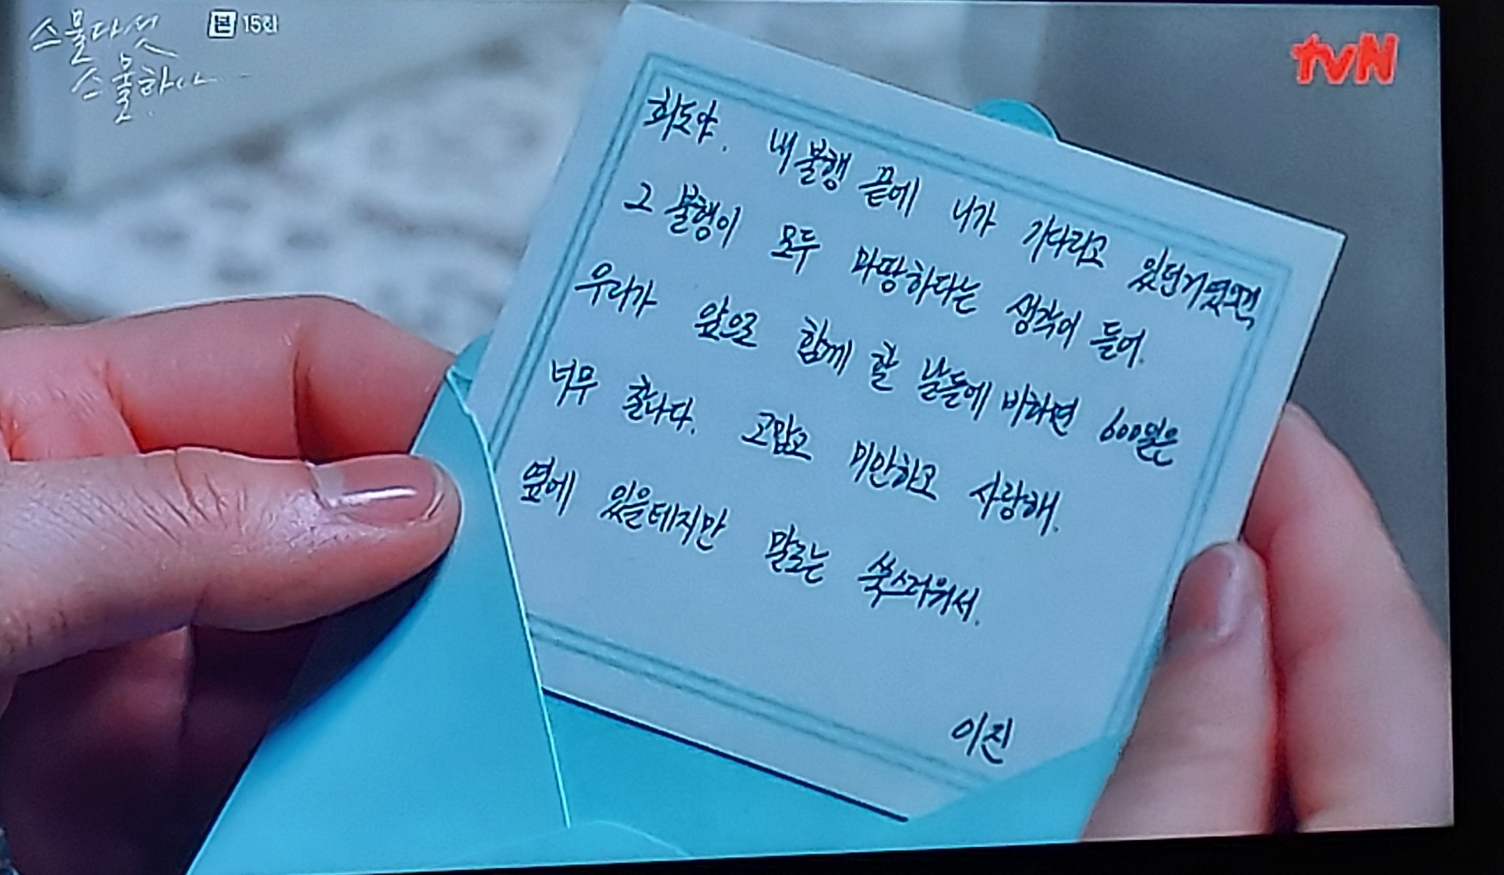 스물다섯
스물하나
본 15회
tvN
희도야. 내 불행 끝에 니가 기다리고 있던거였으면
그 불행이 모두 마땅하다는 생각이 들어.
우리가 앞으로 함께 할 날들에 비하면 600일은
너무 찰나다. 고맙고 미안하고 사랑해.
옆에 있을테지만 말로는 쑥스러워서.
이진